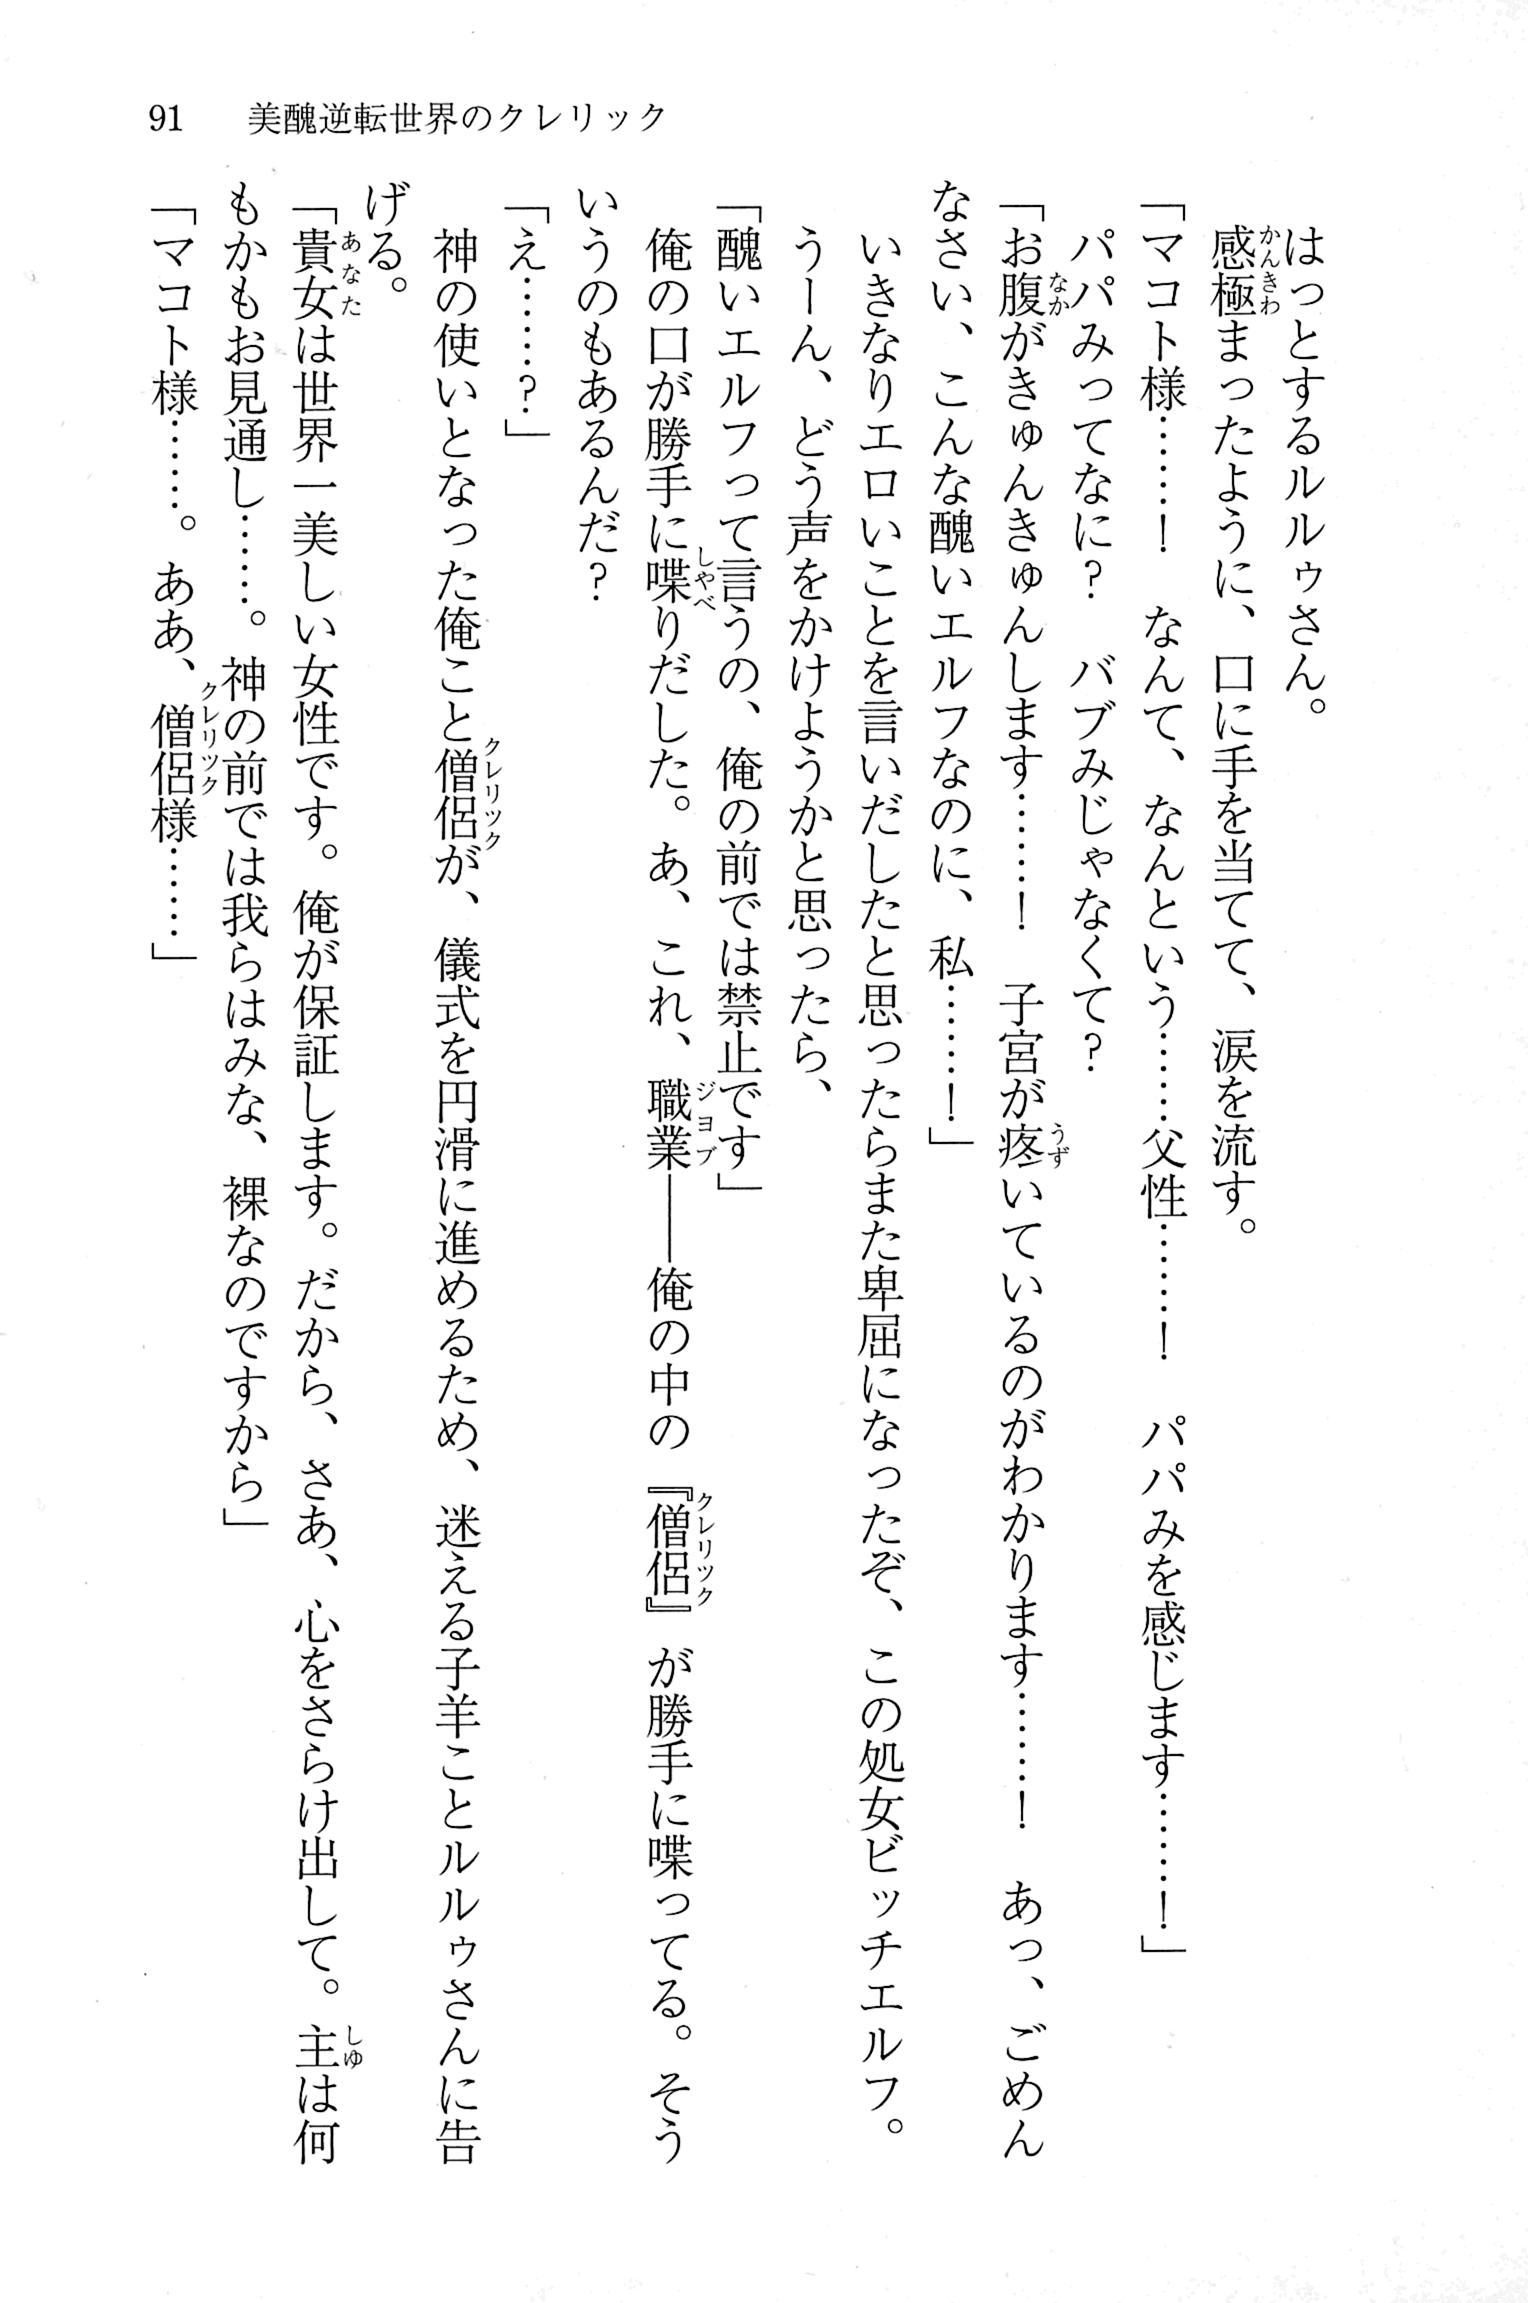 91　美醜逆転世界のクレリック
はっとするルルゥさん。
感極まったように、口に手を当てて、涙を流す。
「マコト様………！　なんて、なんという………父性………！　パパみを感じます………！」
パパみってなに？　バブみじゃなくて？
「お腹がきゅんきゅんします………！　子宮が疼いているのがわかります………！　あっ、ごめん
なさい、こんな醜いエルフなのに、私………！」
いきなりエロいことを言いだしたと思ったらまた卑屈になったぞ、この処女ビッチエルフ。
うーん、どう声をかけようかと思ったら、
「醜いエルフって言うの、俺の前では禁止です」
俺の口が勝手に喋りだした。あ、これ、職業――俺の中の『僧侶』が勝手に喋ってる。そう
いうのもあるんだ？
「え………？」
神の使いとなった俺こと僧侶が、儀式を円滑に進めるため、迷える子羊ことルルゥさんに告
げる。
「貴女は世界一美しい女性です。俺が保証します。だから、さあ、心をさらけ出して。主は何
もかもお見通し……。神の前では我らはみな、裸なのですから」
「マコト様……。ああ、僧侶様……」